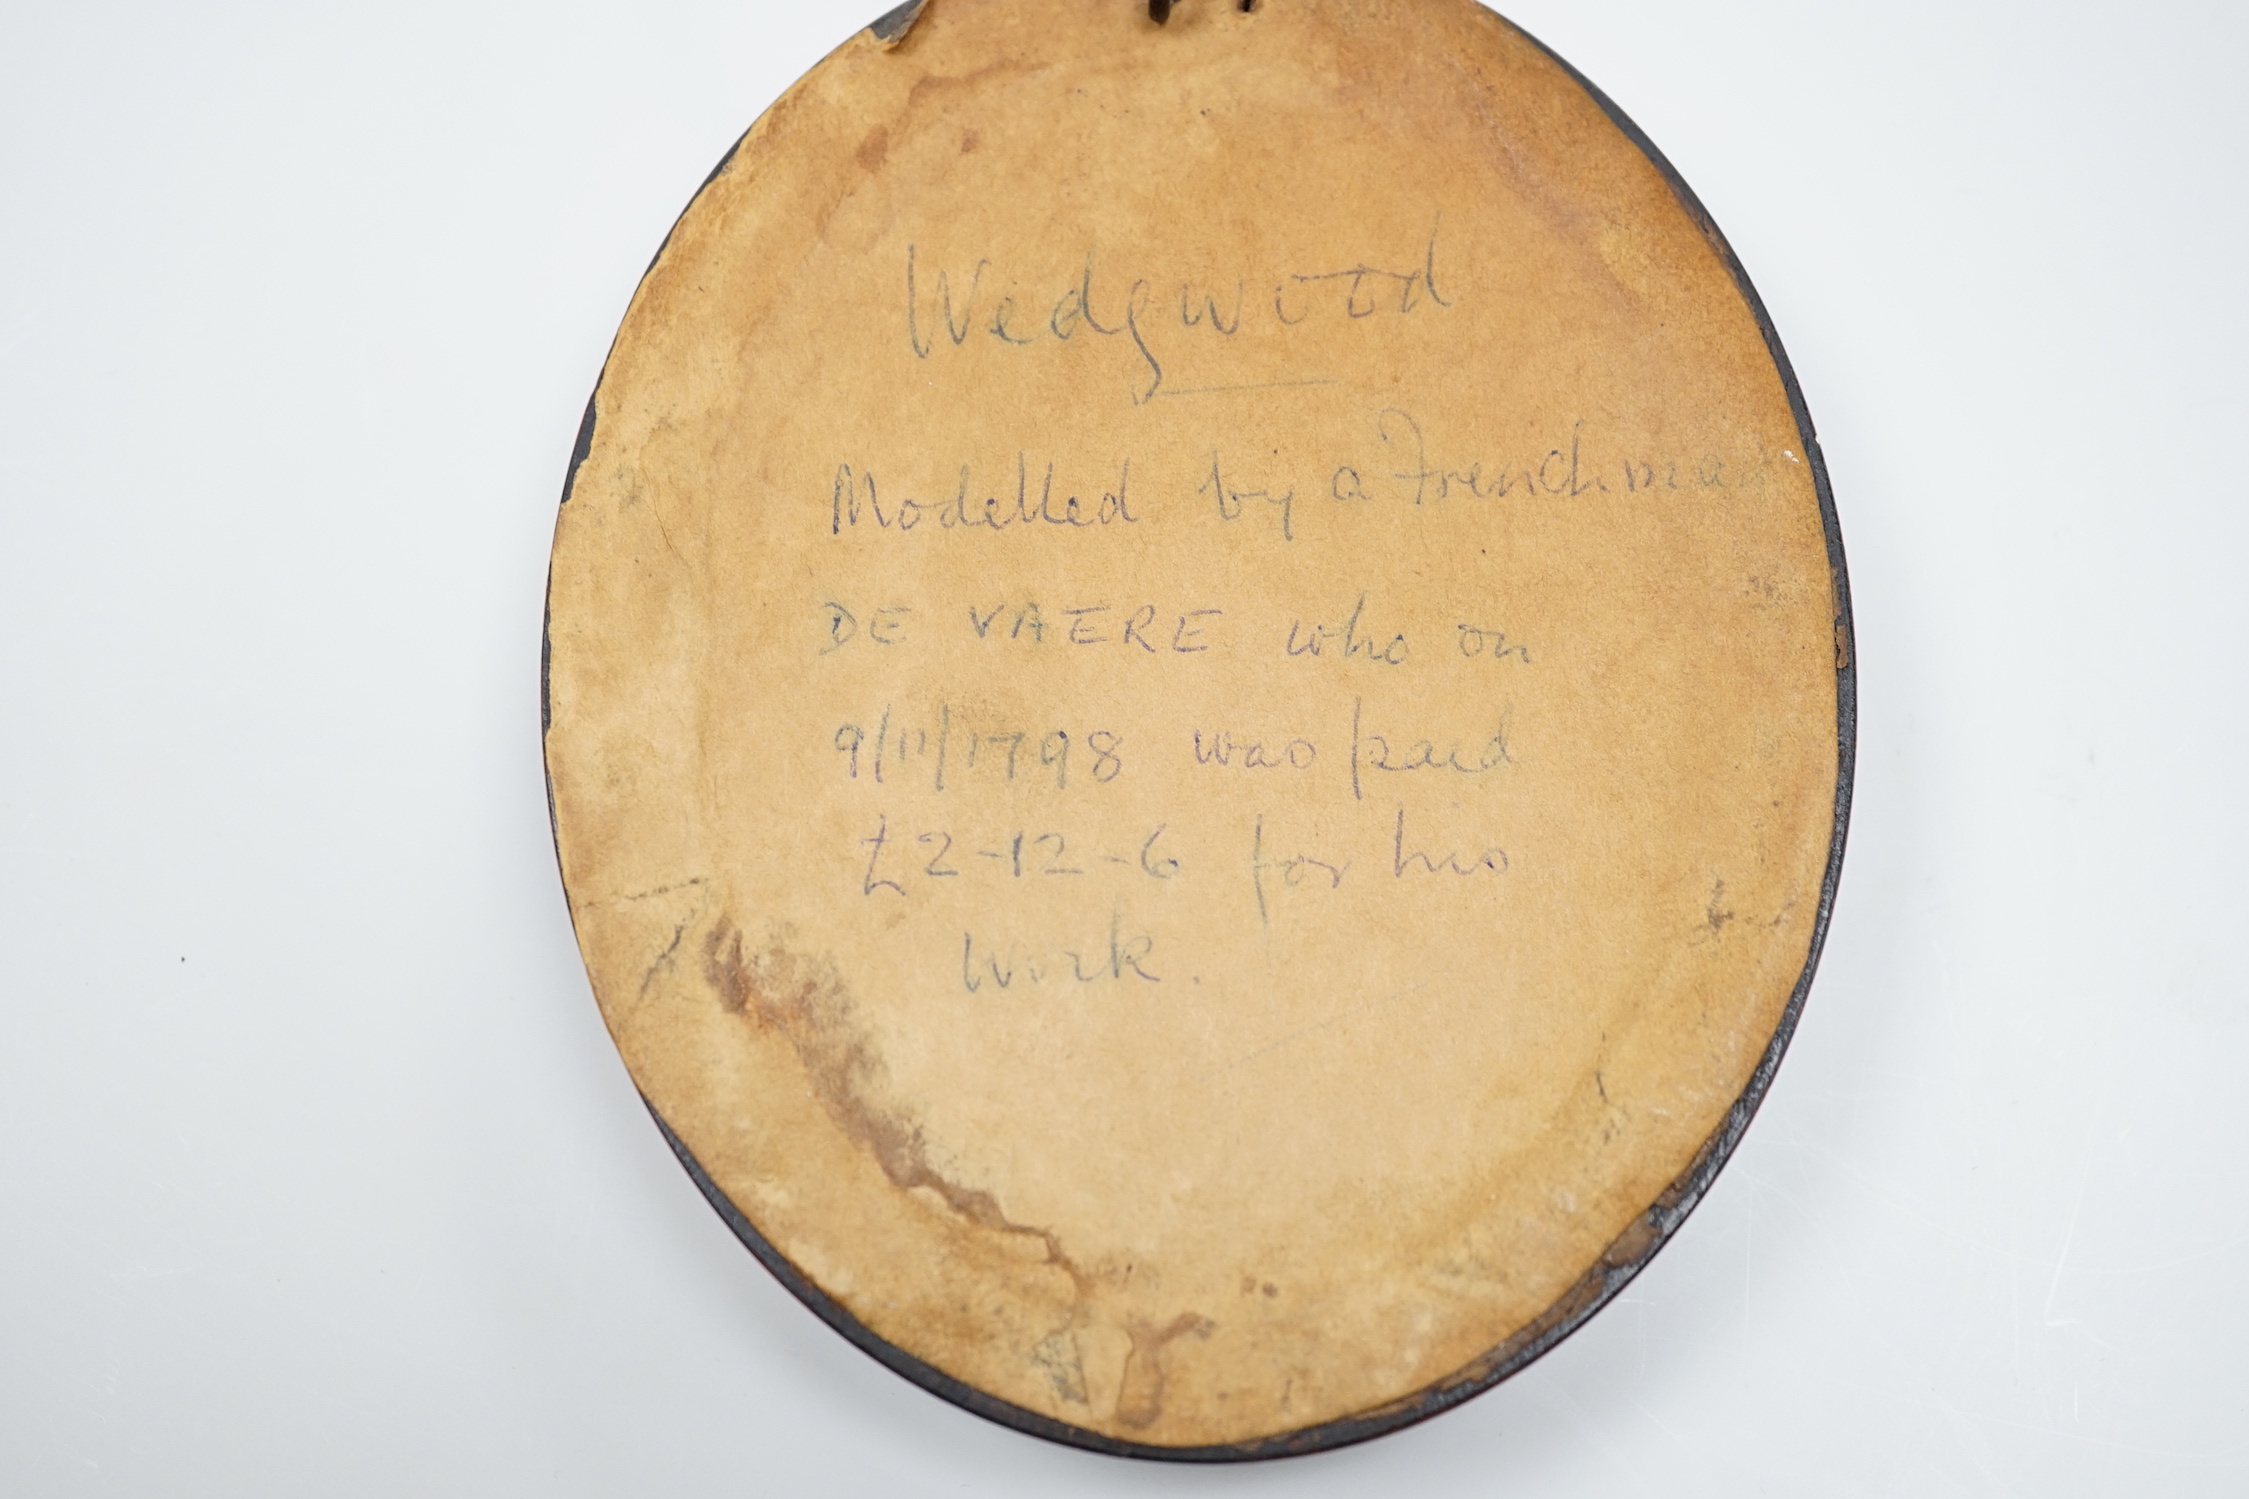 Wedgwood
Modelled by a Frenchman
DE VAERE who on
9/11/1798 was paid
£2-12-6 for his
work.